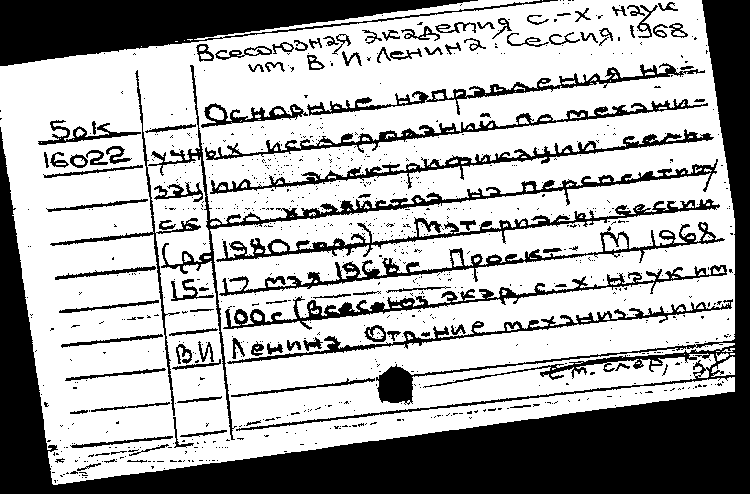 Всесоюзная академия с.-х. наук
им. В.И. Ленина. Сессия. 1968.
50к
16022
Основные направления на-
учных исследований по механи-
зации и электрификации сель-
ского хозяйства на перспективу
(до 1980 года). Материалы сессии
15-17 мая 1968 г. Проект. М, 1968
100 с (Всесоюз акад с.-х. наук им.
В.И. Ленина. Отд-ние механизации
см. след,